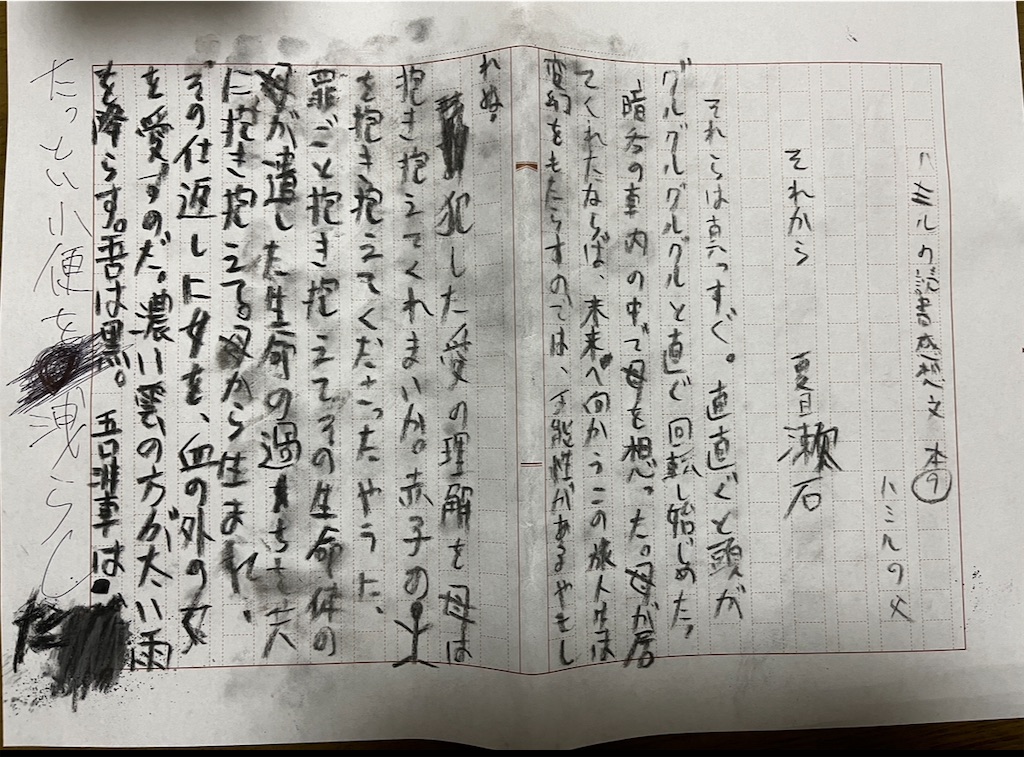 ハミルの読書感想文 本⑨
ハミルの父
それから 夏目漱石
それらは真っすぐ。直直ぐと頭が
グルグルグルグルと直ぐ回転し始じめた。
暗呑の車内の中で母を想った。母が居
てくれたならば、未来へ向かうこの旅人生は
変幻をもたらすのでは、可能性があるやもし
れぬ。
犯した愛の理解を母は
抱き抱えてくれまいか。赤子の
を抱き抱えてくださったやうに、
罪ごと抱き抱えてその生命体の
母が遺した生命の過まちを共
に抱き抱えてる母から生まれ、
その仕返しに女を、血の外の女
を愛すのだ。濃い雲の方が太い雨
を降らす。吾は黒。吾
事は
たった小便を 洩らし
た